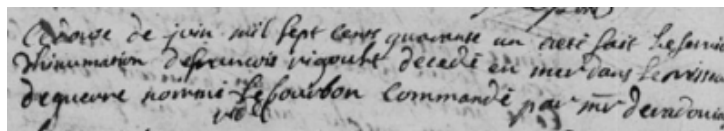 Le douze de juin mil sept cents quarante un a eté fait le servic
d'hinumation de francois rigoult decedé en mer dans le vaissea
de guerre nommé le bourbon commandé par mr de radoua